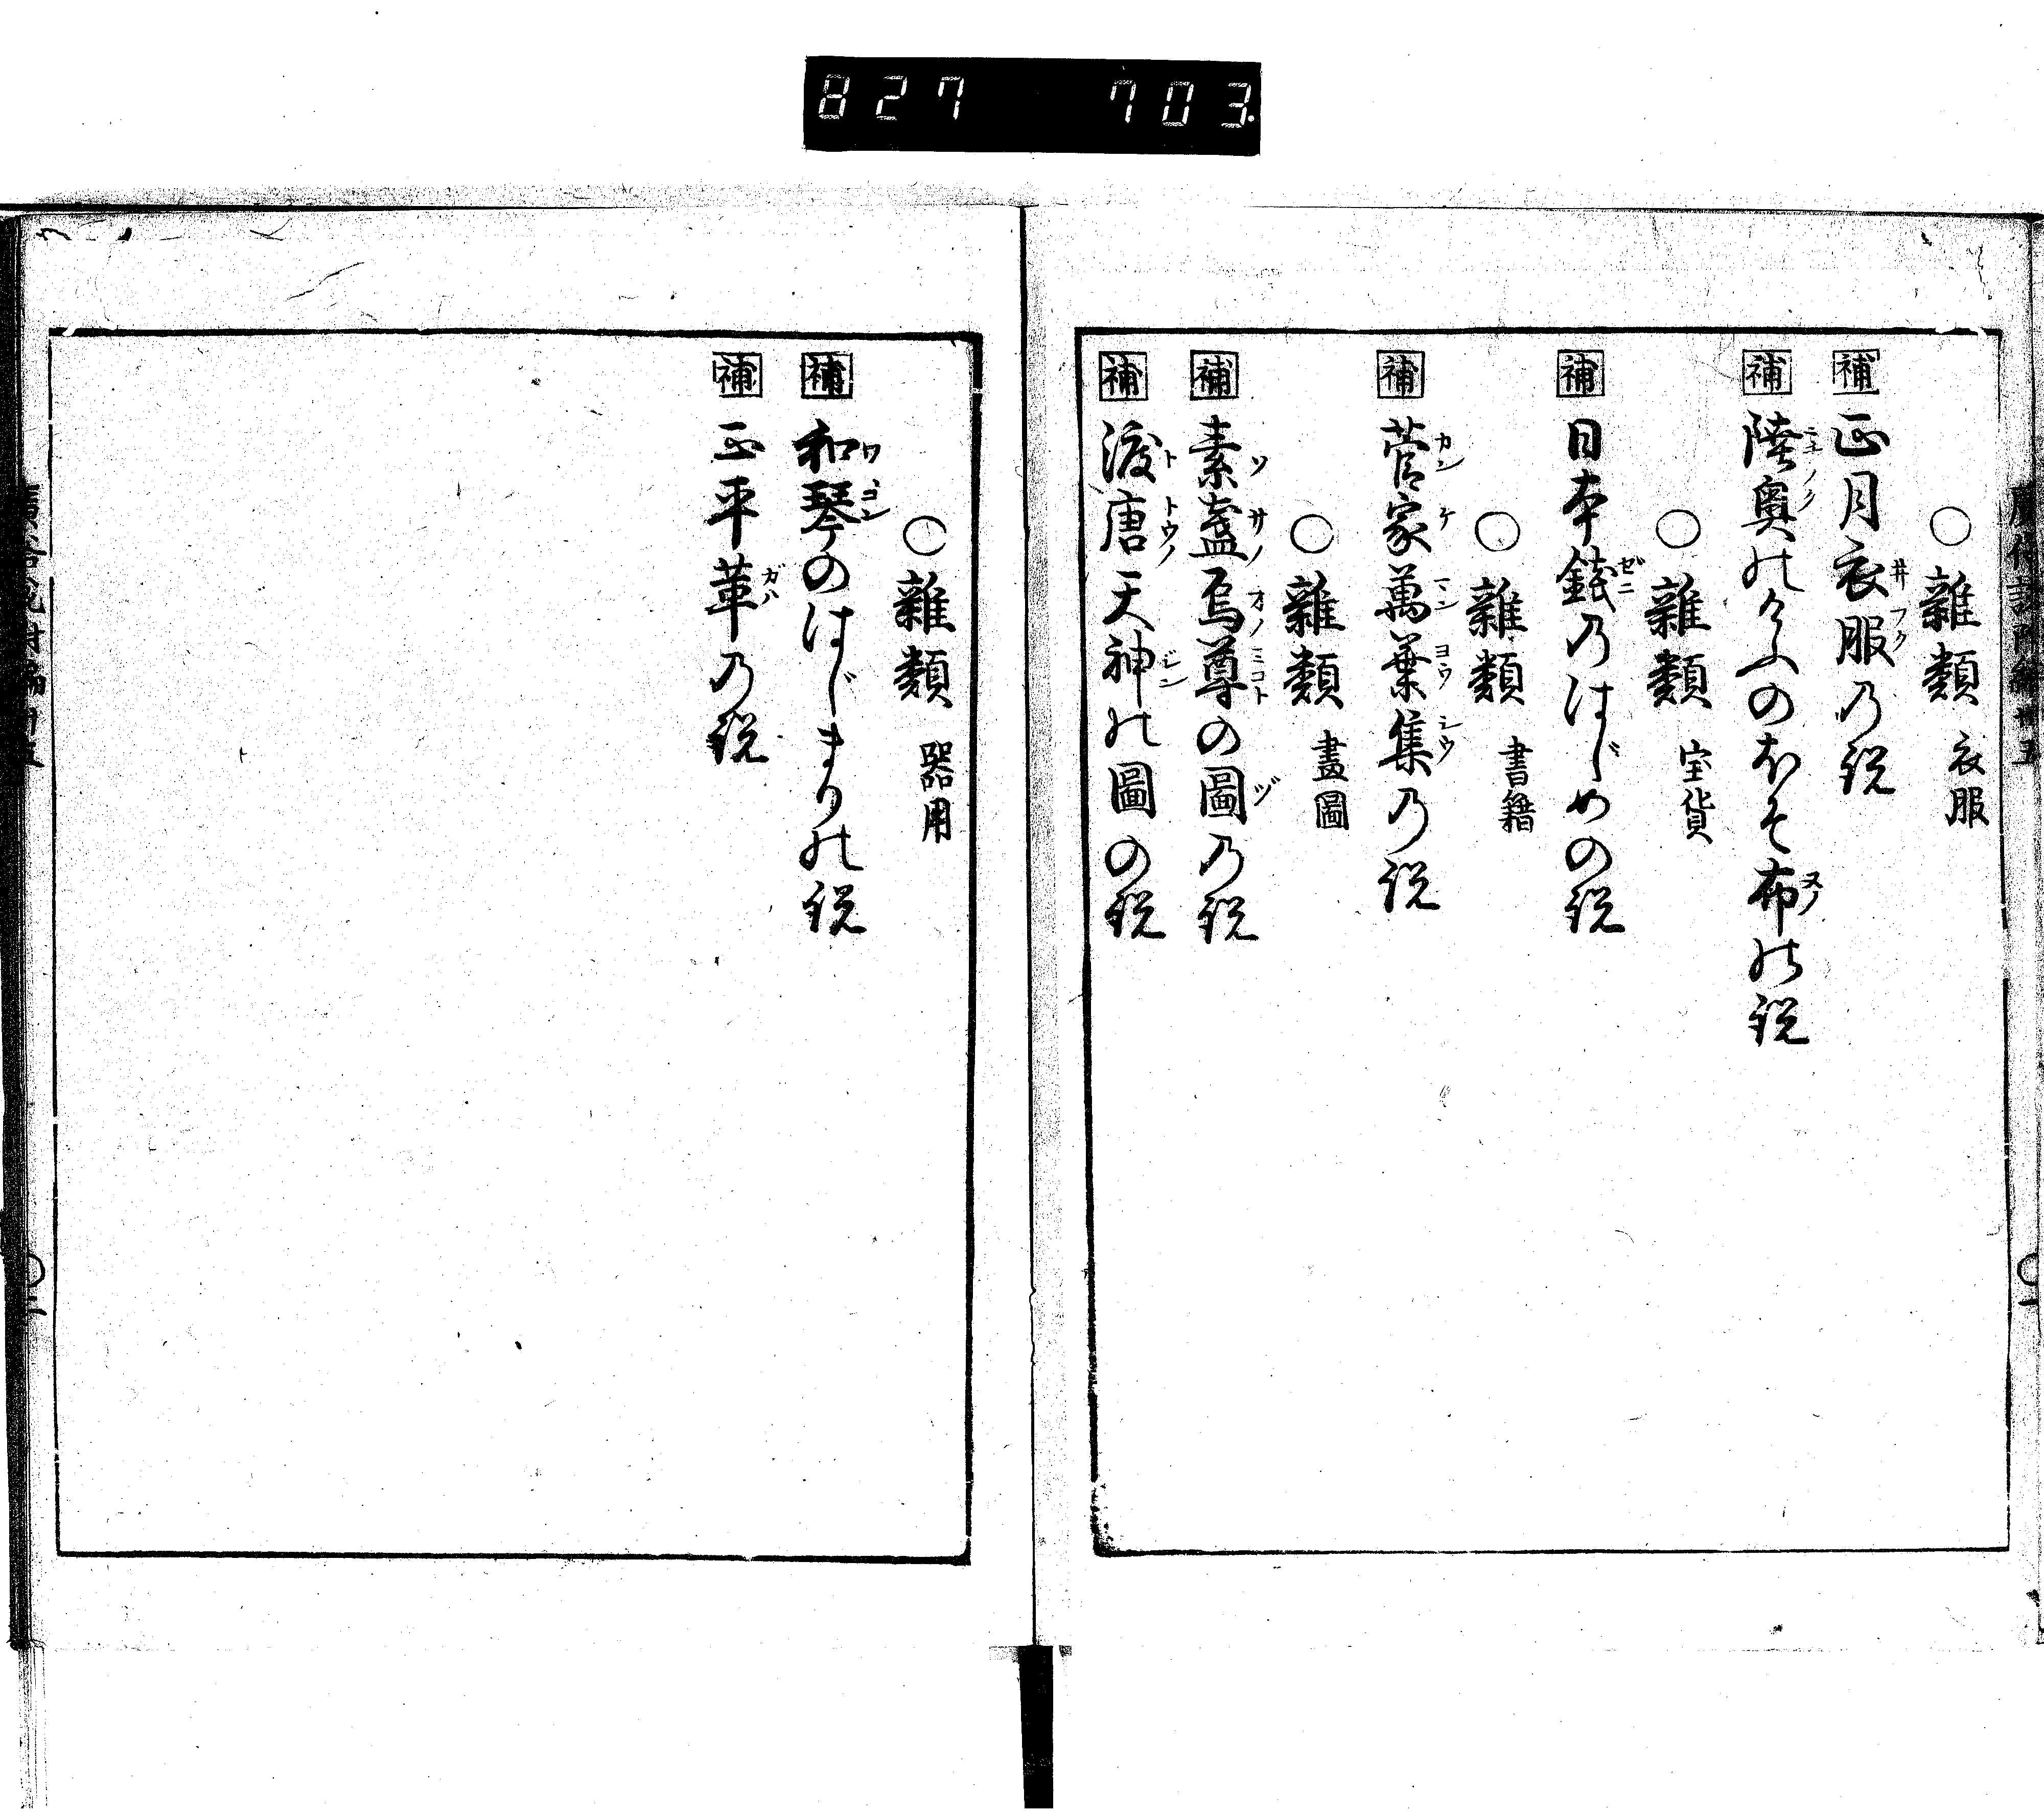 827 703.
○雜類 衣服
補 正月衣服の説
補 陸奥のけふのほそ布の説
○雜類 宝貨
補 日本錢のはじめの説
○雜類 書籍
補 菅家萬葉集の説
○雜類 畫圖
補 素盞烏尊の圖の説
補 渡唐天神の圖の説
○雜類 器用
補 和琴のはじまりの説
補 正平革の説